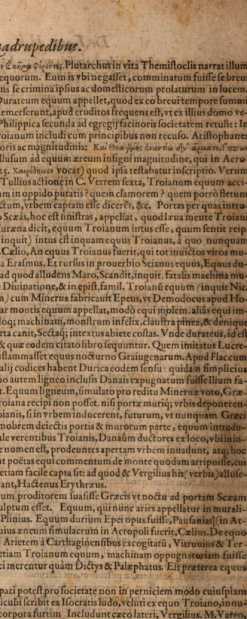 uadrupedibus.
Plutarchus in vita Themistoclis narrat illum
equorum. Eum is vbi negasset, comminatum fuisse se brev
nis se crimina ipsius ac domesticorum prolaturum in lucem.
Durateum equum appellet, quod ex eo breui tempore summ
emerserunt, apud eruditos frequens est, vt ex illius domo ve-
Philippica secunda ad egregij facinoris societatem reculet: In
roianum includi cum principibus non recuso. Aristophanes
oris ac magnitudinis:
llusum ad equum æreum insigni magnitudine, qui in Acro
vocat) quod ipsa testabatur inscriptio. Verùm
Tullius actione in C. Verrem sexta, Troianum equum acci-
m in oppido putatis? quem clamorem? quem porrò fletum
nctum, vrbem captam esse diceres, &c. Portas per quas intro
o Scæas, hoc est sinistras, appellat, quod læua mente Troiani
dicit, equum Troianum intus esse, quum sentit reip
inquit) intus est inquam equus Troianus, à quo nunquam
Cælio, An equus Troianus fuerit, qui tot inuictos viros mu-
a Erasmus. Et rursus in prouerbio Seianus equus, Equus du-
ad quod allusdens Maro, Scandit, inquit. fatalis machina mu
Diuinatione, & in epist. famil. Troianũ equum (inquit Nic
n) cum Minerua fabricauit Epeus, vt Demodocus apud Ho-
ar montis equum appellat, modò equi molem. aliàs equi im
dolos; machinam, monstrum infelix, claustra pinea, & denique
rta canit, Sectaq; intexunt abiete costas. Vnde durateus, id est
& quæ eodem citato libro sequuntur. Quem imitatus Lucre-
nflammasset equus nocturno Graiugenarum. Apud Flaccum
alij codices habent Durica eodem sensu: quidã n simpliciùs
no autem ligneo inclusis Danais expugnatum fuisse Ilium fa-
. Equum ligneum, simulato pro reditu Mineruæ voto, Græ-
roiana recipi non posset, nisi porta muriq; vrbis deponeren-
oianis, si in vrbem inducerent, futurum, vt nunquam Græci
nobrem deiectis portis & murorum parte, equum introdu-
ule verentibus Troianis, Danaûm ductores ex loco, vbi insi-
nomen est, prodeuntes apertam vrbem inuadunt, atq; hoc
ut poëtas equi commentum de monte quodam arripuisse, cui
etiam facile capta sit: ad quod & Vergilius his verbis alluse-
ant, Hactenus Erythræus.
um proditorem suasisse Græcis vt noctu ad portam Scæam
culptum esset. Equum, qui nunc aries appellatur in murali-
Plinius. Equum durium Epei opus fuisse, Pausanias) in At-
eius æneum simulacrum in Acropoli fuerit, Cælius. De equo
Arietem à Carthaginensibus excogitatũ, Vitruuius & Ter-
etiam Troianum equum, machinam oppugnatoriam fuisse
ci meretur quàm Dictys & Palæphatus. Est præterea equus
pati potest pro societate non in perniciem modo cuiusplam
culis) scribit ex Isocratis ludo, velut ex equo Troiano, innu-
corpora furtim Includunt cæco lateri, Vergilius. M. Varro